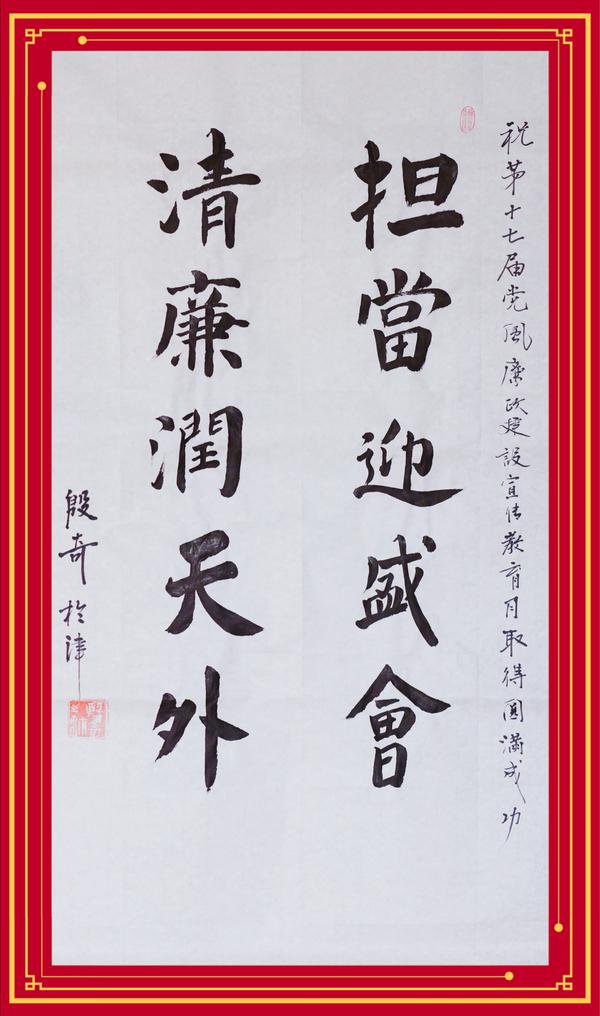 祝第十七届党风廉政建設宣传教育月取得圆满成功
担當迎盛會
清廉潤天外
殷奇於津